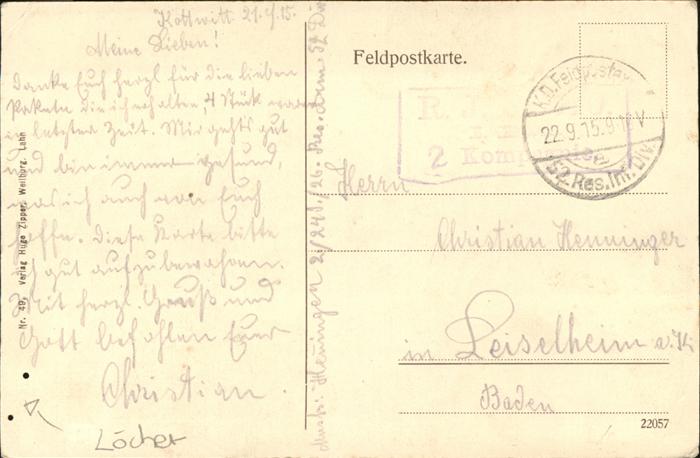 Kottwitt 21.9.15.
Meine Lieben!
Danke Euch herzl für die lieben
Pakete die ich erhalten, 4 Stück
in letzter Zeit. Mir gehts gut
und bin immer gesund,
was ich auch von Euch
hoffe. Diese Karte bitte
ich gut aufzubewahren.
Mit herzl. Gruß und
Gott befohlen Euer
Christian.
Löcher
Nr. 49. Verlag Hugo Zipper, Weilburg, Lahn
Henningen 2/240/26. Res. Arm 52 Div
Feldpostkarte.
R.
2 Kompanie
K.D. Feldpost
22.9.15.9 V
52. Res. Inf. Div.
Herrn
Christian Henninger
in Leiselheim a.K.
Baden
22057